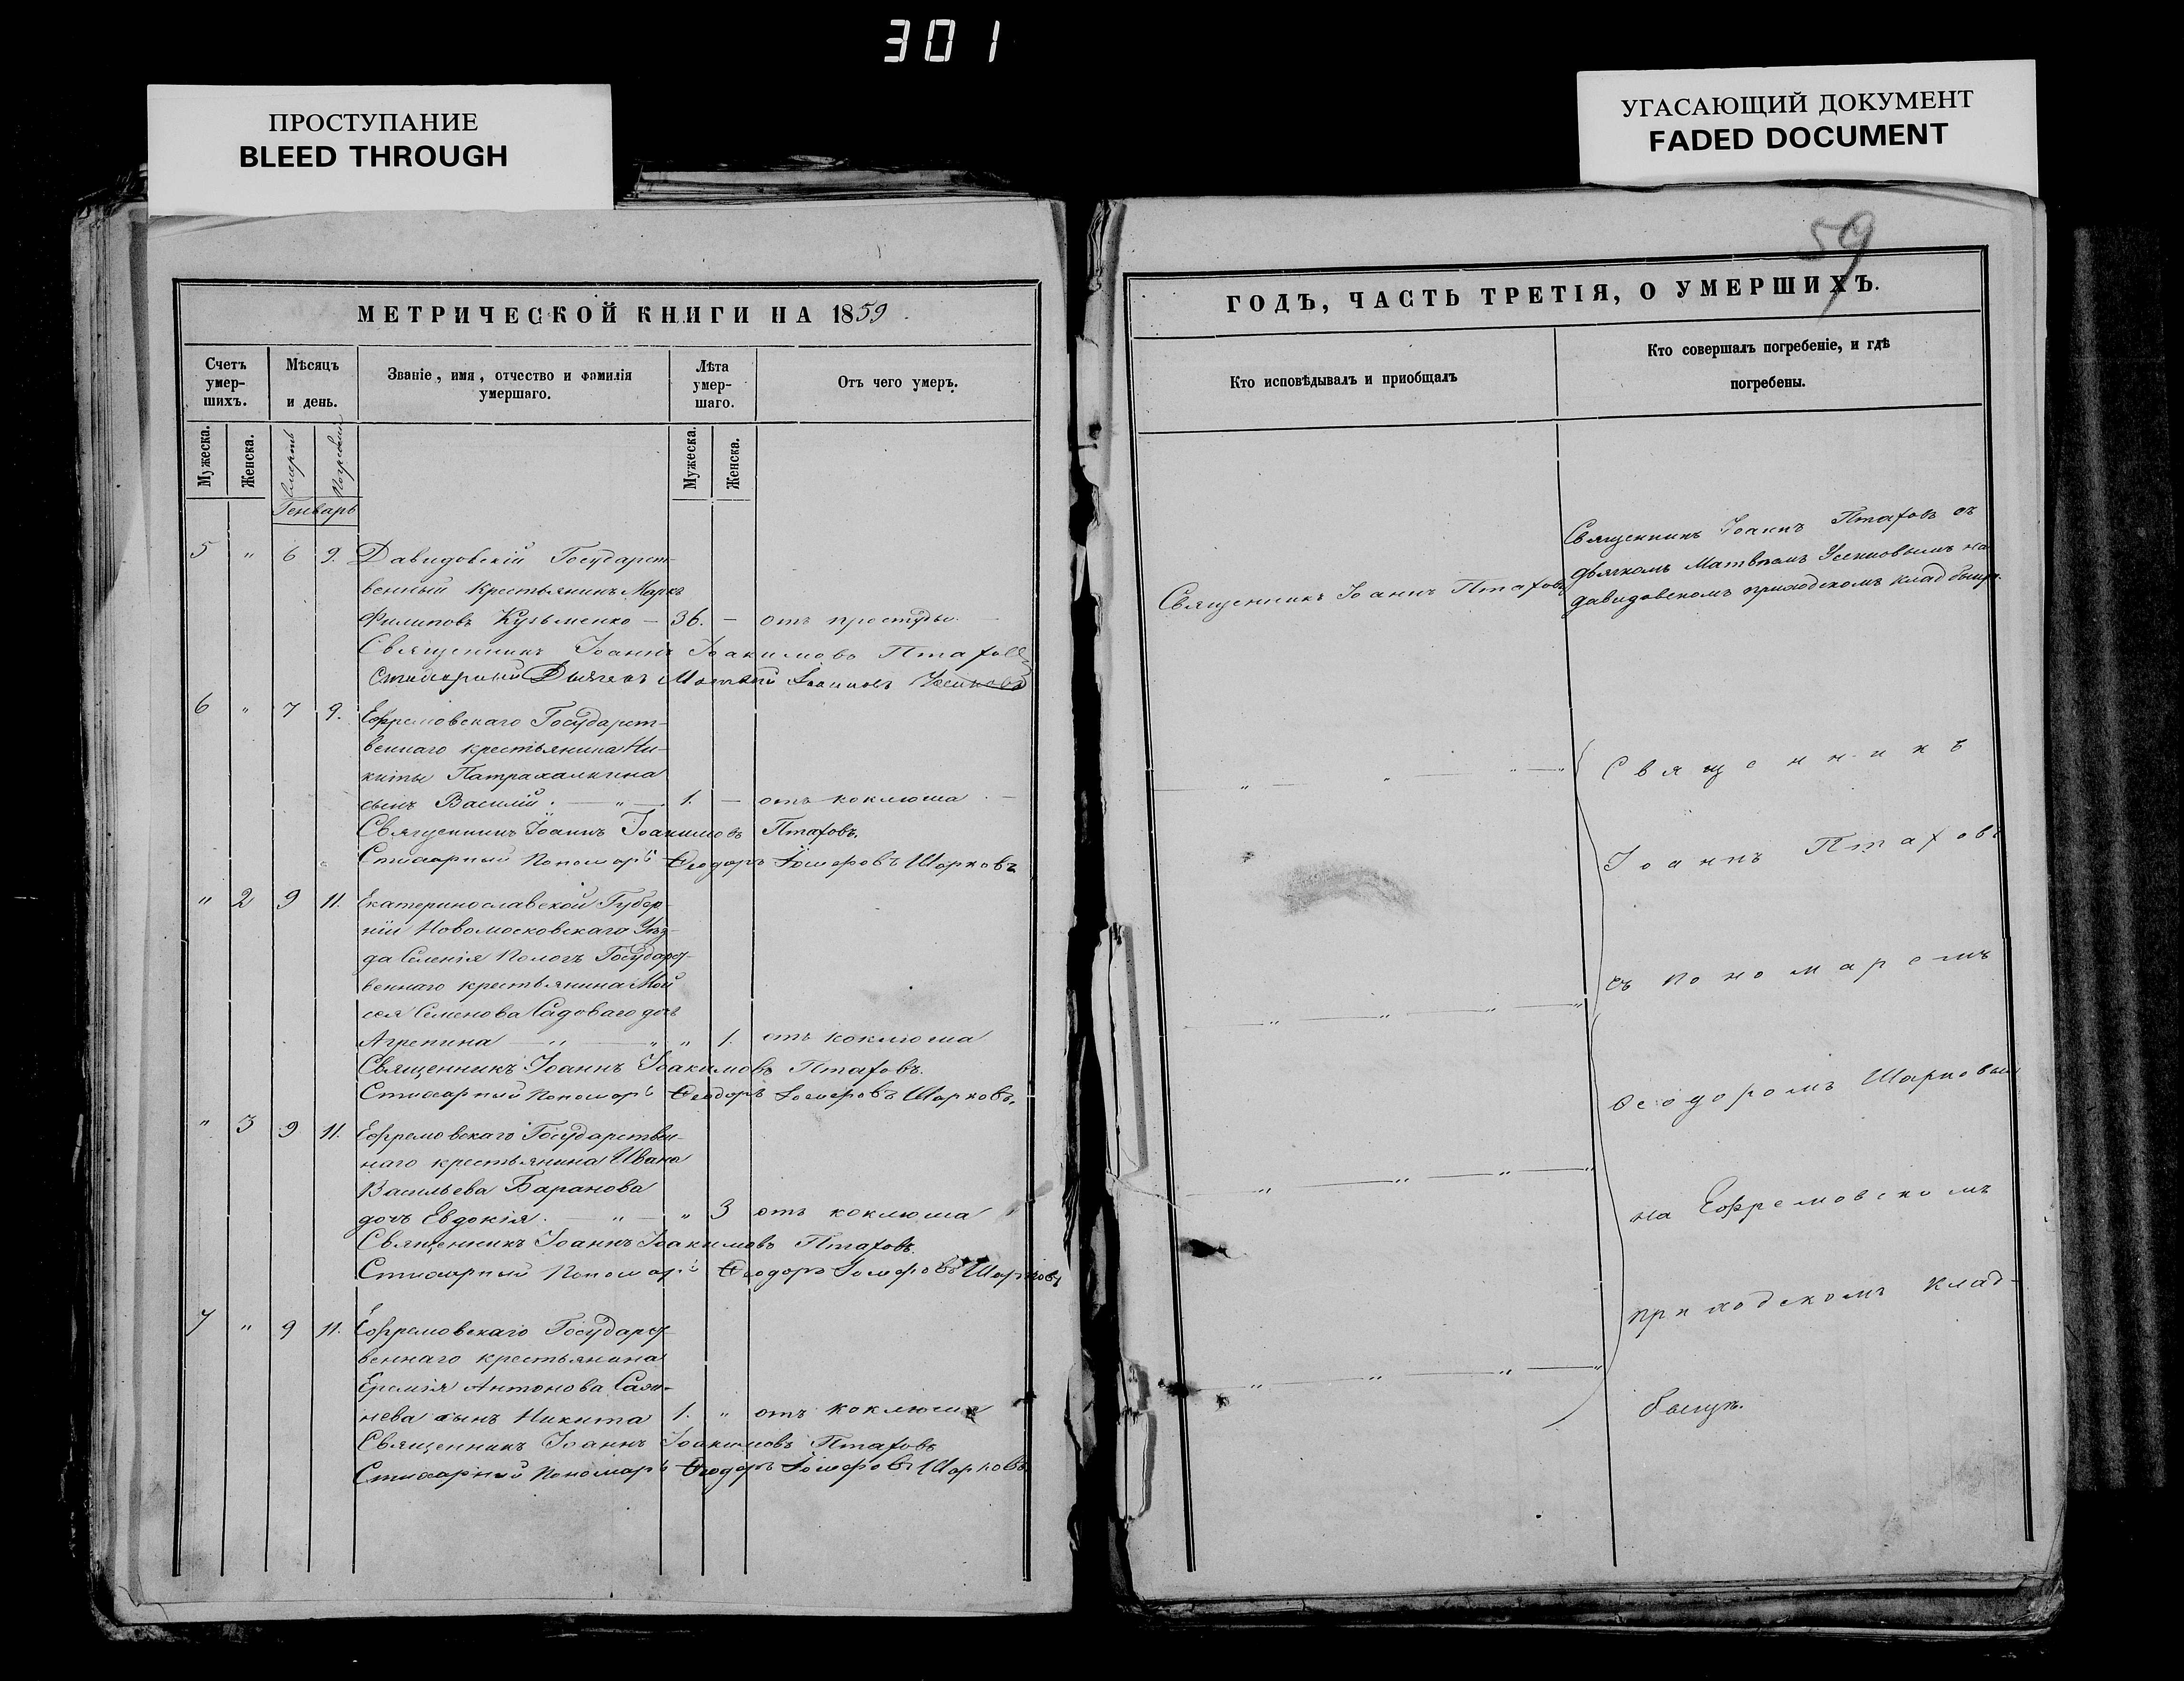 301
ПРОСТУПАНИЕ
BLEED THROUGH
УГАСАЮЩИЙ ДОКУМЕНТ
FADED DOCUMENT
МЕТРИЧЕСКОЙ КНИГИ НА 1859.
Счетъ умер-шихъ.
Мѣсяцъ и день.
Званіе, имя, отчество и фамилія умершаго.
Лѣта умер-шаго.
Отъ чего умеръ.
Мужеска.
Женска.
Смерть
Погребенія
Мужеска.
Женска.
Генварь
5 " 6 9. Давидовскій Государст-
венный крестьянинъ Марко
Филиповъ Кузьменко — 36. — отъ простуды. —
Священникъ Іоаннъ Іоакимовъ Птаховъ
Стихарный Дьячекъ Матвей Іоанновъ
6 " 7 9. Ефремовскаго Государст-
веннаго крестьянина Ни-
киты Патрахалкина
сынъ Василій. — " — 1. — отъ коклюша. —
Священникъ Іоаннъ Іоакимовъ Птаховъ.
Стихарный Пономарь Ѳеодоръ Шарковъ
" 2 9 11. Екатеринославской Губер-
ніи Новомосковскаго Уѣз-
да Селенія Пологъ Государст-
веннаго крестьянина Мой
сея Семенова Садоваго дочь
Агрепина — " — " " 1. отъ коклюша
Священникъ Іоаннъ Іоакимовъ Птаховъ.
Стихарный Пономарь Ѳеодоръ Шарковъ.
" 3 9 11. Ефремовскаго Государствен-
наго крестьянина Ивана
Васильева Баранова
дочь Евдокія. — " — " 3 отъ коклюша
Священникъ Іоаннъ Іоакимовъ Птаховъ.
Стихарный Пономарь Ѳеодоръ Шарковъ
7 " 9 11. Ефремовскаго Государст-
веннаго крестьянина
Еремія Антонова
нева сынъ Никита 1. " отъ коклюша
Священникъ Іоаннъ Іоакимовъ Птаховъ
Стихарный Пономарь Ѳеодоръ Шарковъ
59
ГОДЪ, ЧАСТЬ ТРЕТІЯ, О УМЕРШИХЪ.
Кто исповѣдывалъ и приобщалъ
Кто совершалъ погребеніе, и гдѣ
погребены.
Священникъ Іоаннъ Птаховъ
Священникъ Іоаннъ Птаховъ съ
дьячкомъ Матвѣемъ на
давидовскомъ приходскомъ кладбищѣ.
Священникъ
Іоаннъ Птаховъ
съ пономаремъ
Ѳеодоромъ Шарковым
на Ефремовскомъ
приходскомъ клад-
бищѣ.